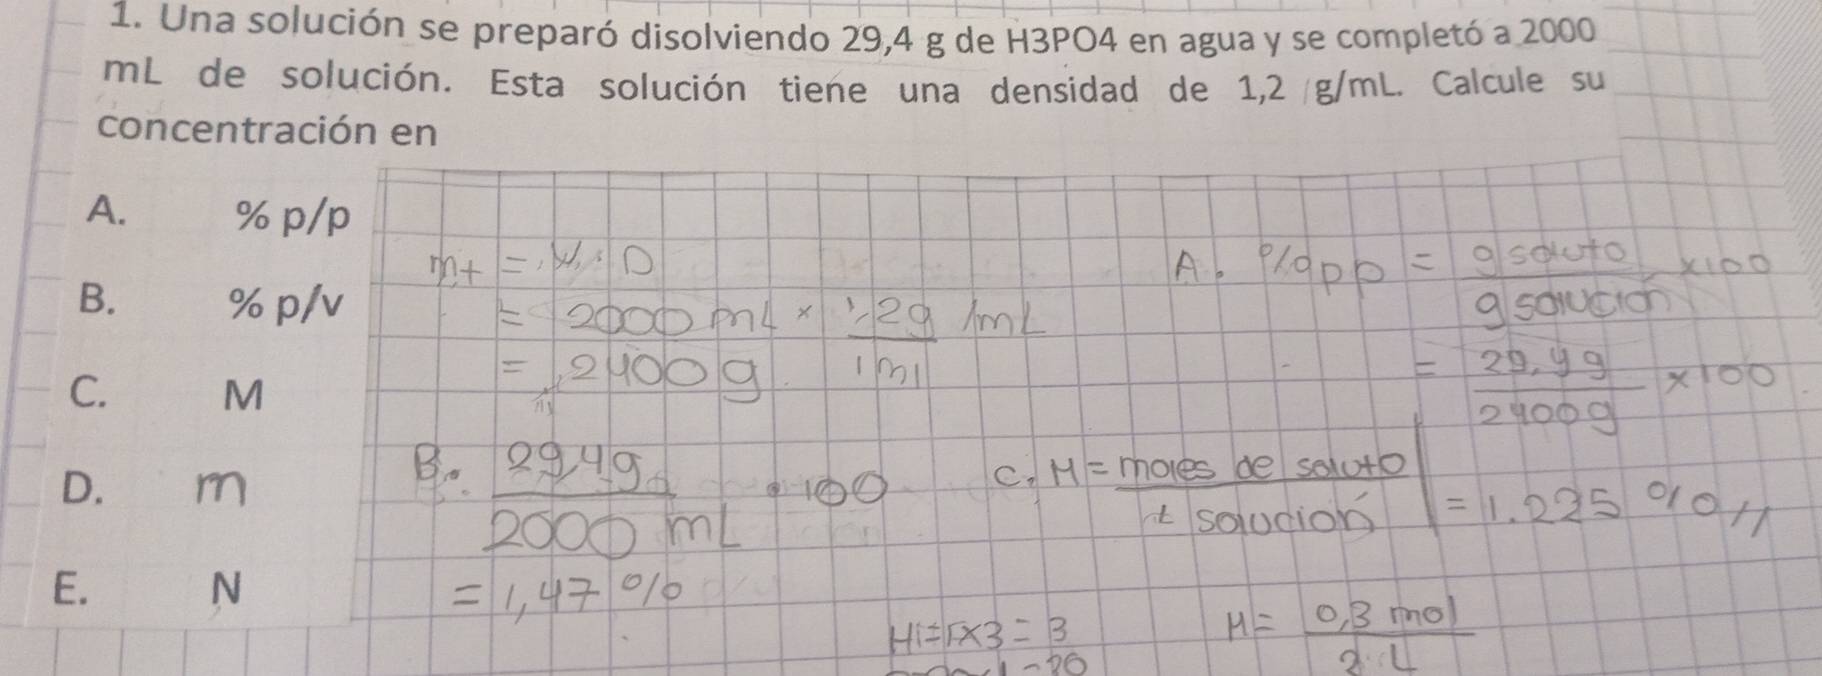 1. Una solución se preparó disolviendo 29,4 g de H3PO4 en agua y se completó a 2000
mL de solución. Esta solución tiene una densidad de 1,2 g/mL. Calcule su
concentración en
A. % p/p
B. % p/v
C. M
D. m
E. N
= 2000 mL × 1,2g /mL
1ml
= 2400g
A. %pp = g soluto x100
g solución
= 29,4g x100
2400g
= 1.225 %//
B. 29,4g . 100
2000 mL
= 1,47 %
C. M = moles de soluto
L solución
H=1x3=3
M= 0,3 mol
2 L